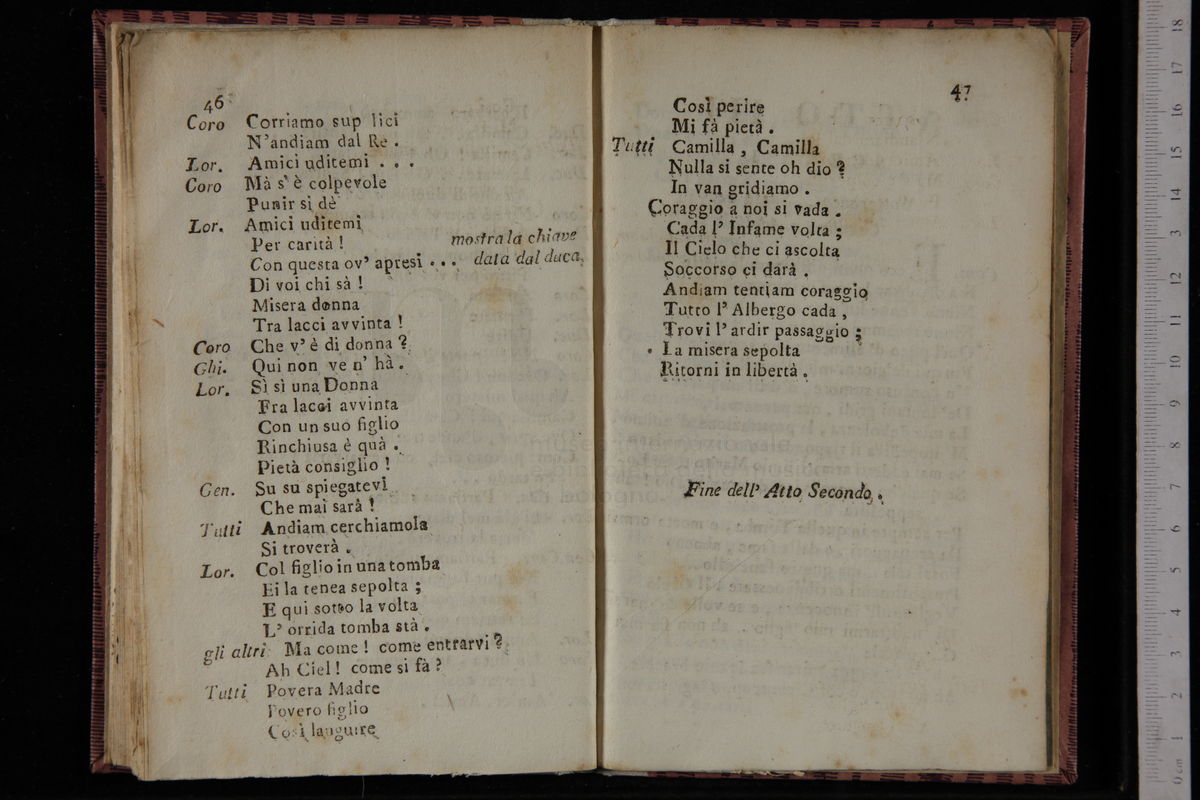 46
Coro Corriamo sup lici
N'andiam dal Re .
Lor. Amici uditemi . . .
Coro Mà s' è colpevole
Punir si dè
Lor. Amici uditemi
Per carità ! mostra la chiave
Con questa ov' apresi . . . data dal duca.
Di voi chi sà !
Misera donna
Tra lacci avvinta !
Coro Che v' è di donna ?
Ghi. Qui non ve n' hà .
Lor. Sì sì una Donna
Fra lacci avvinta
Con un suo figlio
Rinchiusa è quà .
Pietà consiglio !
Gen. Su su spiegatevi
Che mai sarà !
Tutti Andiam cerchiamola
Si troverà .
Lor. Col figlio in una tomba
Ei la tenea sepolta ;
E qui sotto la volta
L' orrida tomba stà .
gli altri Ma come ! come entrarvi ?
Ah Ciel ! come si fà ?
Tutti Povera Madre
Povero figlio
Così languire
47
Così perire
Mi fà pietà .
Tutti Camilla , Camilla
Nulla si sente oh dio ?
In van gridiamo .
Coraggio a noi si vada .
Cada l' Infame volta ;
Il Cielo che ci ascolta
Soccorso ci darà .
Andiam tentiam coraggio
Tutto l' Albergo cada ,
Trovi l' ardir passaggio ;
La misera sepolta
Ritorni in libertà .
Fine dell' Atto Secondo .
0 cm 1 2 3 4 5 6 7 8 9 10 11 12 13 14 15 16 17 18